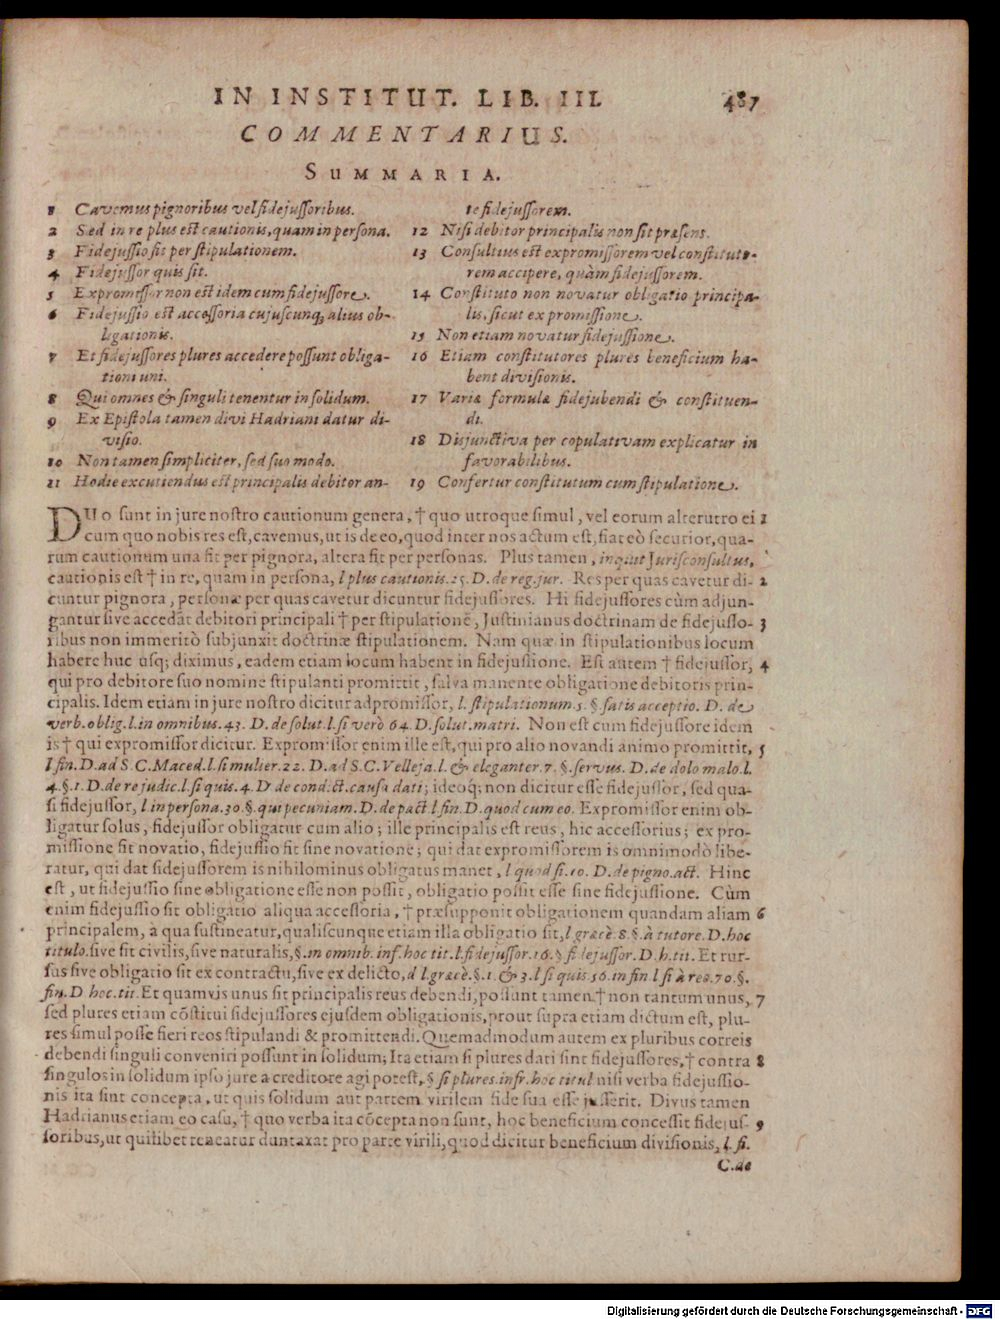 IN INSTITUT. LIB. III. 487
COMMENTARIUS.
SUMMARIA.
1 Cavemus pignoribus vel fidejussoribus.
2 Sed in re plus est cautionis, quam in persona.
3 Fidejussio fit per stipulationem.
4 Fidejussor quis sit.
5 Expromissor non est idem cum fidejussore.
6 Fidejussio est accessoria cujuscunq; alius ob-
ligationis.
7 Et fidejussores plures accedere possunt obliga-
tioni uni.
8 Qui omnes & singuli tenentur in solidum.
9 Ex Epistola tamen divi Hadriani datur di-
visio.
10 Non tamen simpliciter, sed suo modo.
11 Hodie excutiendus est principalis debitor an-
te fidejussorem.
12 Nisi debitor principalis non sit præsens.
13 Consultius est expromissorem vel constituto-
rem accipere, quàm fidejussorem.
14 Constituto non novatur obligatio principa-
lis, sicut expromissione.
15 Non etiam novatur fidejussione.
16 Etiam constitutores plures beneficium ha-
bent divisionis.
17 Variæ formulæ fidejubendi & constituen-
di.
18 Disjunctiva per copulativam explicatur in
favorabilibus.
19 Confertur constitutum cum stipulatione.
DUo sunt in jure nostro cautionum genera, † quo utroque simul, vel eorum alterutro ei 1
cum quo nobis res est, cavemus, ut is de eo, quod inter nos actum est, fiat eò securior, qua-
rum cautionum una fit per pignora, altera fit per personas. Plus tamen, inquit Jurisconsultus,
cautionis est † in re, quam in persona, l plus cautionis. 25. D. de reg. jur. Res per quas cavetur di- 2
cuntur pignora, personæ per quas cavetur dicuntur fidejussores. Hi fidejussores cùm adjun-
gantur sive accedāt debitori principali † per stipulationē, Justinianus doctrinam de fidejusso- 3
ribus non immeritò subjunxit doctrinæ stipulationem. Nam quæ in stipulationibus locum
habere huc usq; diximus, eadem etiam locum habent in fidejussione. Est autem † fidejussor, 4
qui pro debitore suo nomine stipulanti promittit, salva manente obligatione debitoris prin-
cipalis. Idem etiam in jure nostro dicitur adpromissor, l. stipulationum. 5. §. satis acceptio. D. de
verb. oblig. l. in omnibus. 43. D. de solut. l. si verò 64. D. solut. matri. Non est cum fidejussore idem
is † qui expromissor dicitur. Expromissor enim ille est, qui pro alio novandi animo promittit, 5
l fin. D. ad S. C. Maced. l. si mulier. 22. D. ad S. C. Velleja. l. & eleganter. 7. §. servus. D. de dolo malo. l.
4. §. 1. D. de re judic. l. si quis. 4. D de cond. ct. causa dati; ideoq; non dicitur esse fidejussor, sed qua-
si fidejussor, l in persona. 30. §. qui pecuniam. D. de pact. l. fin. D. quod cum eo. Expromissor enim ob-
ligatur solus, fidejussor obligatur cum alio; ille principalis est reus, hic accessorius; ex pro-
missione fit novatio, fidejussio fit sine novatione; qui dat expromissorem is omnimodò libe-
ratur, qui dat fidejussorem is nihilominus obligatus manet, l quod si. 10. D. de pigno. act. Hinc
est, ut fidejussio sine obligatione esse non possit, obligatio possit esse sine fidejussione. Cùm
enim fidejussio sit obligatio aliqua accessoria, † præsupponit obligationem quandam aliam 6
principalem, à qua sustineatur, qualiscunque etiam illa obligatio sit, l græcè. 8. §. à tutore. D. hoc
titulo. sive sit civilis, sive naturalis, §. in omnib. inf. hoc tit. l. fidejussor. 16. § fidejussor. D. h. tit. Et rur-
sus sive obligatio sit ex contractu, sive ex delicto, d l. græcè. §. 1. & 3. l si quis 56. in fin l si à rea. 70. §.
fin. D hoc. tit. Et quamvis unus sit principalis reus debendi, possunt tamen † non tantum unus, 7
sed plures etiam cōstitui fidejussores ejusdem obligationis, prout supra etiam dictum est, plu-
res simul posse fieri reos stipulandi & promittendi. Quemadmodum autem ex pluribus correis
debendi singuli conveniri possunt in solidum; Ita etiam si plures dati sint fidejussores, † contra 8
singulos in solidum ipso jure a creditore agi potest, § si plures. infr. hoc titul nisi verba fidejussio-
nis ita sint concepta, ut quis solidum aut partem virilem fide sua esse jusserit. Divus tamen
Hadrianus etiam eo casu, † quo verba ita cōcepta non sunt, hoc beneficium concessit fidejus- 9
soribus, ut quilibet teneatur duntaxat pro parte virili, quod dicitur beneficium divisionis, l. si.
C. de
Digitalisierung gefördert durch die Deutsche Forschungsgemeinschaft - DFG